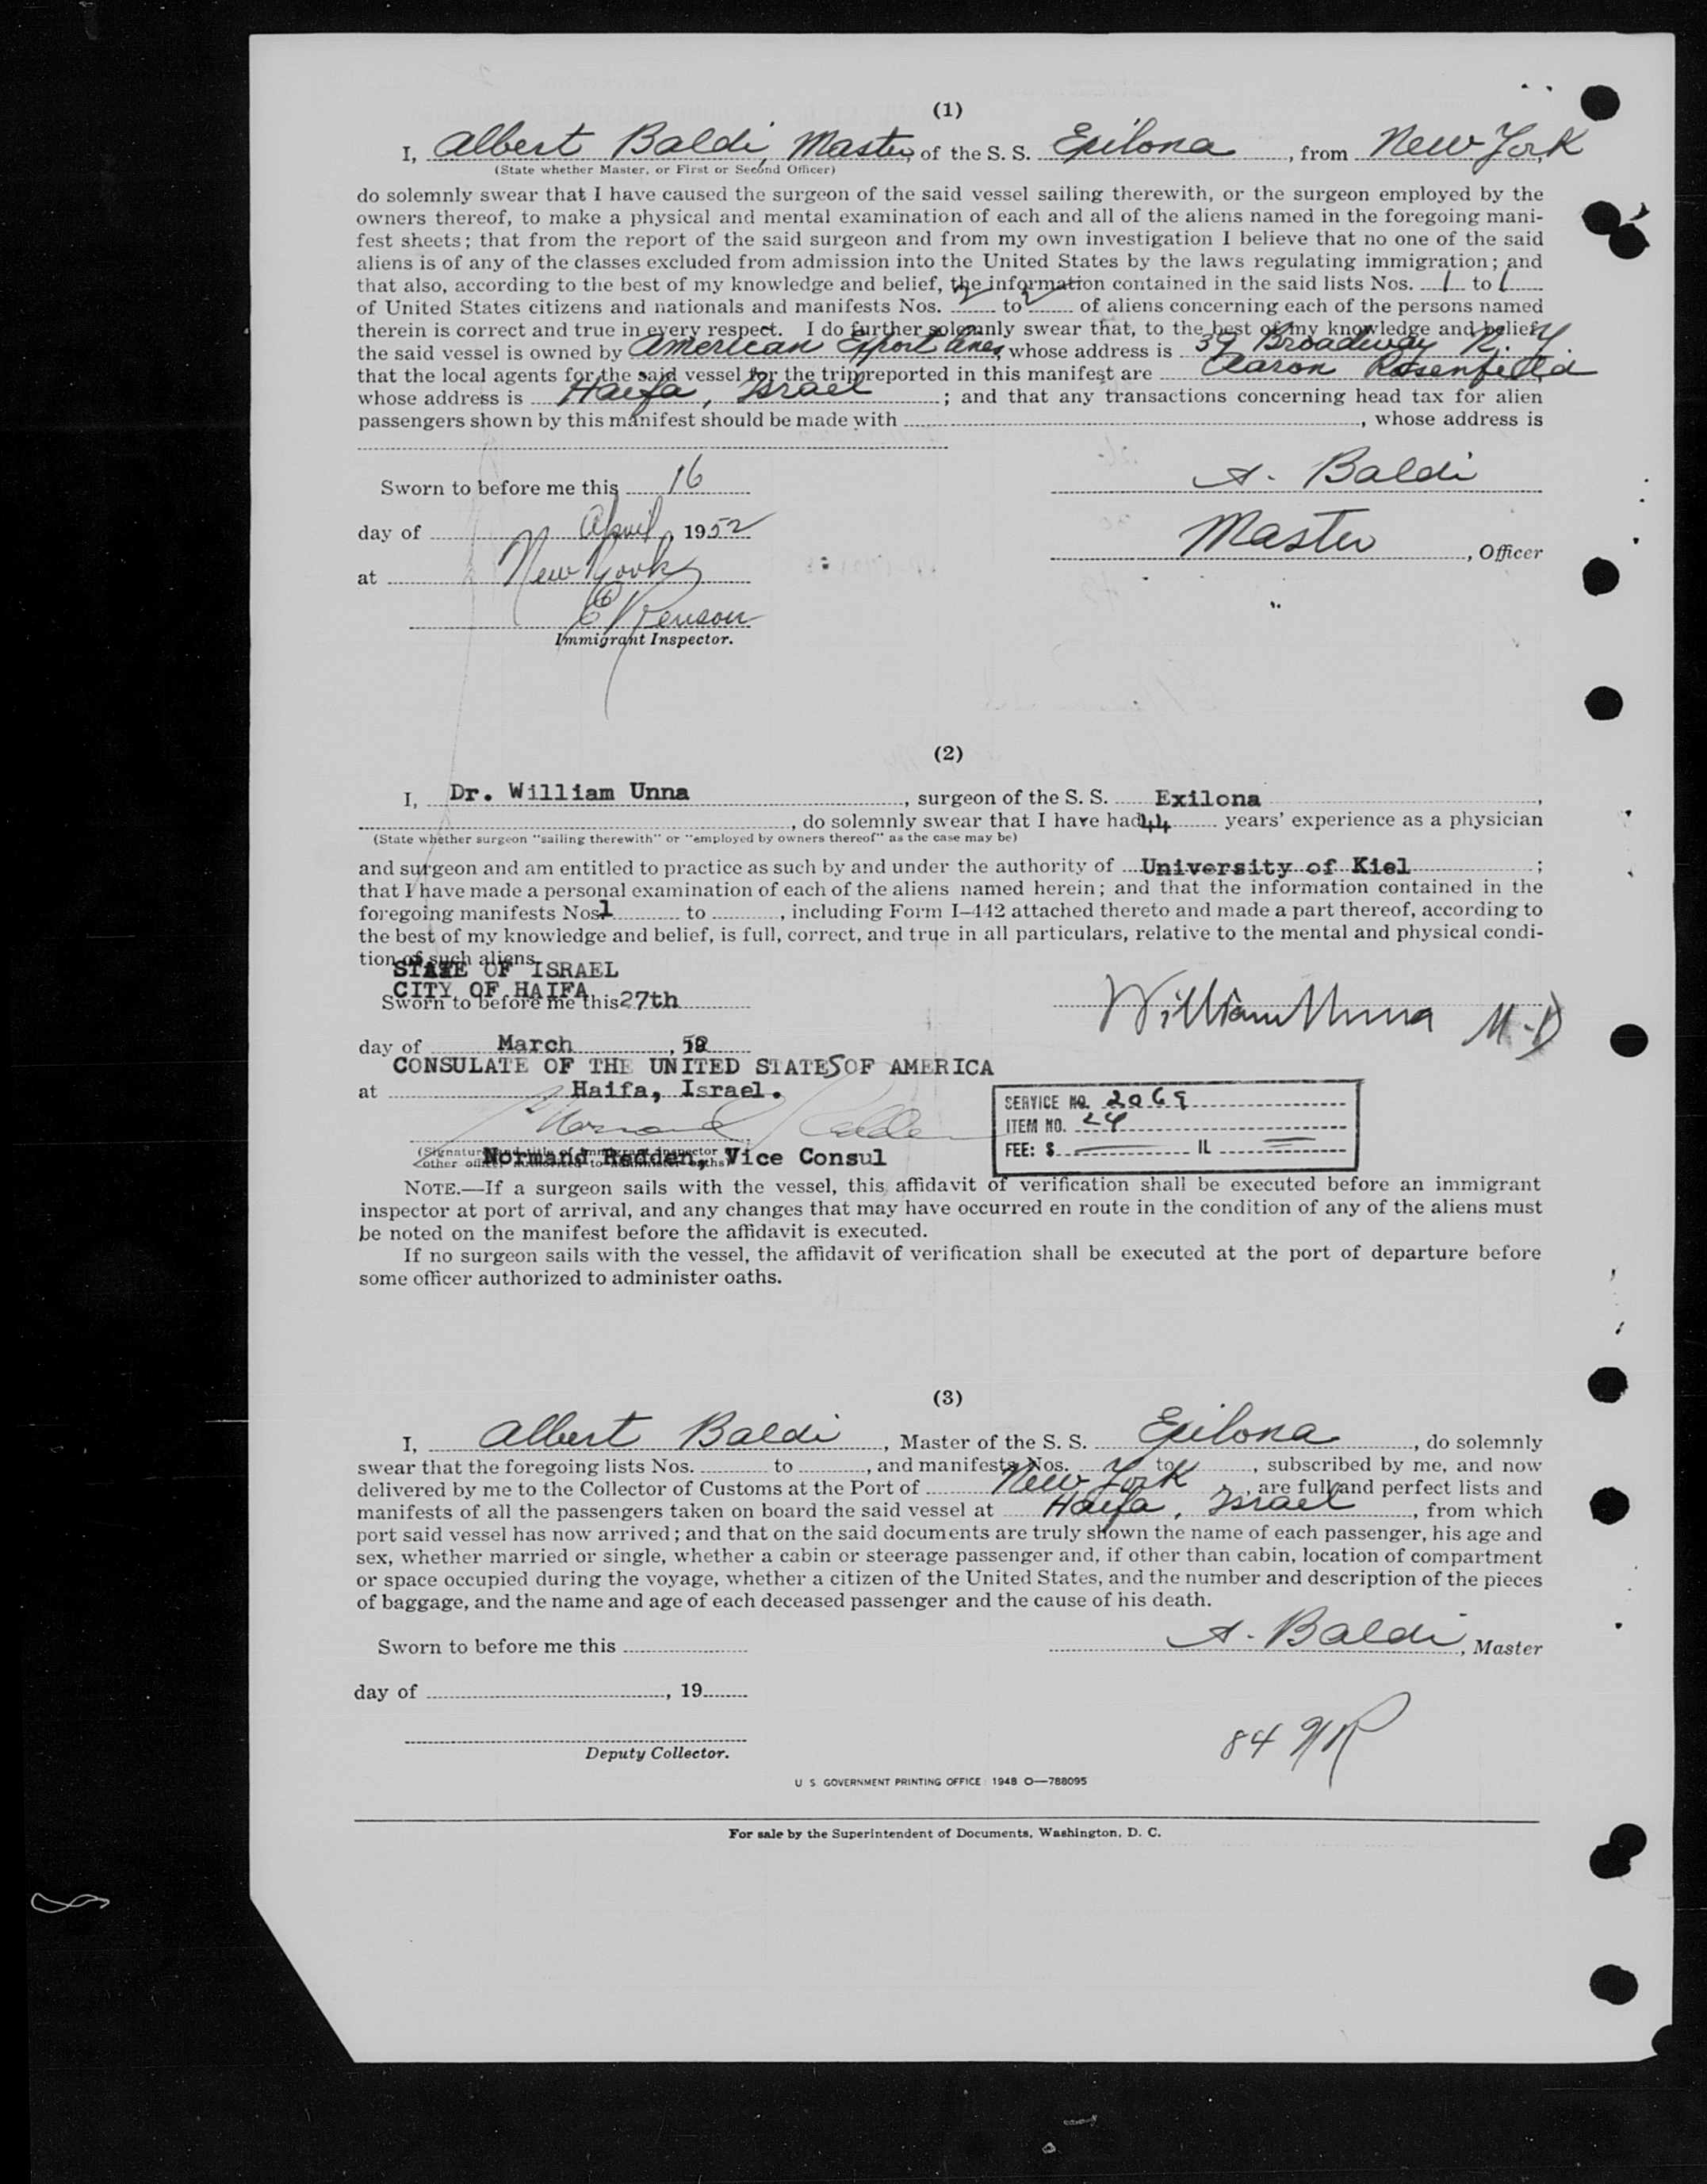 (1)
I, Albert Baldi, Master, of the S. S. Exilona, from New York
(State whether Master, or First or Second Officer)
do solemnly swear that I have caused the surgeon of the said vessel sailing therewith, or the surgeon employed by the
owners thereof, to make a physical and mental examination of each and all of the aliens named in the foregoing mani-
fest sheets; that from the report of the said surgeon and from my own investigation I believe that no one of the said
aliens is of any of the classes excluded from admission into the United States by the laws regulating immigration; and
that also, according to the best of my knowledge and belief, the information contained in the said lists Nos. 1 to 1
of United States citizens and nationals and manifests Nos. 2 to 2 of aliens concerning each of the persons named
therein is correct and true in every respect. I do further solemnly swear that, to the best of my knowledge and belief,
the said vessel is owned by American Export Lines, whose address is 39 Broadway N. Y.
that the local agents for the said vessel for the trip reported in this manifest are Aaron Rosenfeld
whose address is Haifa, Israel; and that any transactions concerning head tax for alien
passengers shown by this manifest should be made with , whose address is
Sworn to before me this 16
A. Baldi
day of April, 1952
Master, Officer
at New York
Immigrant Inspector.
(2)
I, Dr. William Unna, surgeon of the S. S. Exilona,
, do solemnly swear that I have had 44 years' experience as a physician
(State whether surgeon "sailing therewith" or "employed by owners thereof" as the case may be)
and surgeon and am entitled to practice as such by and under the authority of University of Kiel;
that I have made a personal examination of each of the aliens named herein; and that the information contained in the
foregoing manifests Nos. 1 to , including Form I-442 attached thereto and made a part thereof, according to
the best of my knowledge and belief, is full, correct, and true in all particulars, relative to the mental and physical condi-
tion of such aliens.
STATE OF ISRAEL
CITY OF HAIFA
Sworn to before me this 27th
William Unna M.D
day of March, 52
CONSULATE OF THE UNITED STATES OF AMERICA
at Haifa, Israel.
SERVICE NO. 2069
ITEM NO. 24
FEE: $ IL
(Signature and title of immigrant inspector or
other officer authorized to administer oaths)
Normand Redden, Vice Consul
NOTE.—If a surgeon sails with the vessel, this affidavit of verification shall be executed before an immigrant
inspector at port of arrival, and any changes that may have occurred en route in the condition of any of the aliens must
be noted on the manifest before the affidavit is executed.
If no surgeon sails with the vessel, the affidavit of verification shall be executed at the port of departure before
some officer authorized to administer oaths.
(3)
I, Albert Baldi, Master of the S. S. Exilona, do solemnly
swear that the foregoing lists Nos. to , and manifests Nos. to , subscribed by me, and now
delivered by me to the Collector of Customs at the Port of New York, are full and perfect lists and
manifests of all the passengers taken on board the said vessel at Haifa, Israel, from which
port said vessel has now arrived; and that on the said documents are truly shown the name of each passenger, his age and
sex, whether married or single, whether a cabin or steerage passenger and, if other than cabin, location of compartment
or space occupied during the voyage, whether a citizen of the United States, and the number and description of the pieces
of baggage, and the name and age of each deceased passenger and the cause of his death.
Sworn to before me this
A. Baldi, Master
day of , 19
Deputy Collector.
84
U. S. GOVERNMENT PRINTING OFFICE: 1948 O—788095
For sale by the Superintendent of Documents, Washington, D. C.